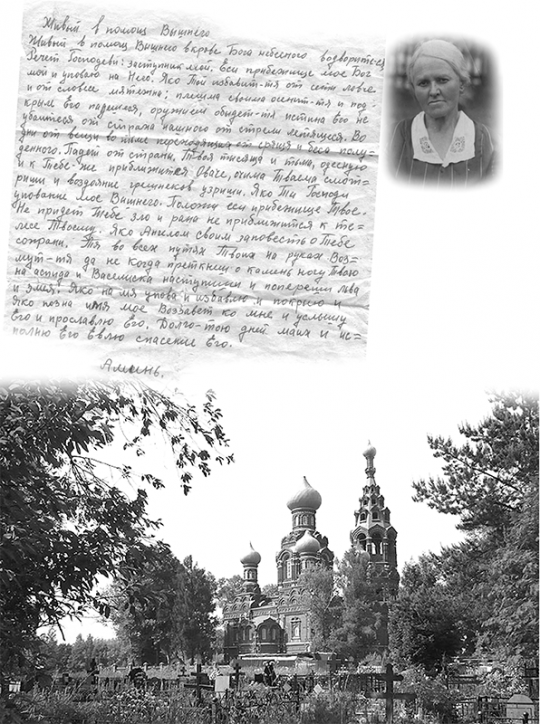 Живый в помощ Вышнего
Живый в помощ Вишнего вкрове Бога небесного водворится
Речет Господеви: заступник мой. Еси прибежище мое Бог
мой и уповаю на Него. Яко Той избавит-тя от сети ловче
и от словесе мятежна: плещма своима осенит-тя и под
крыле его надеися, оружием обыдет-тя истина его не
убоишеся от страха нашного от стрели летящися. Во
дни от вещи во тьме преходящия от сряща и беса полу-
денного. Падет от страни, Твоя тисяща и тьма, одесную
и к Тебе же приближится Обаче, очима Твоима смот-
риши и воздояние грешников узриши. Яко Ти Господи
упование мое Вишнего. Положил еси прибежище Твое.
Не придет Тебе зло и рано не приближится к те-
лесе Твоему. Яко Ангелом своим заповесть о Тебе
сохрани. Тя во всех путях Твоих на руках Воз-
мут-тя да не когда преткнеш о камень ногу Твою
на аспида и Василиска наступиши и попереши льва
и змея. Яко на мя упова и избавлю и покрыю и
Яко позна имя мое Воззовет ко мне и услышу
Его и прославлю Его. Долго-тою дней маих и ис-
полню Его евлю спасение Его.
Аминь.